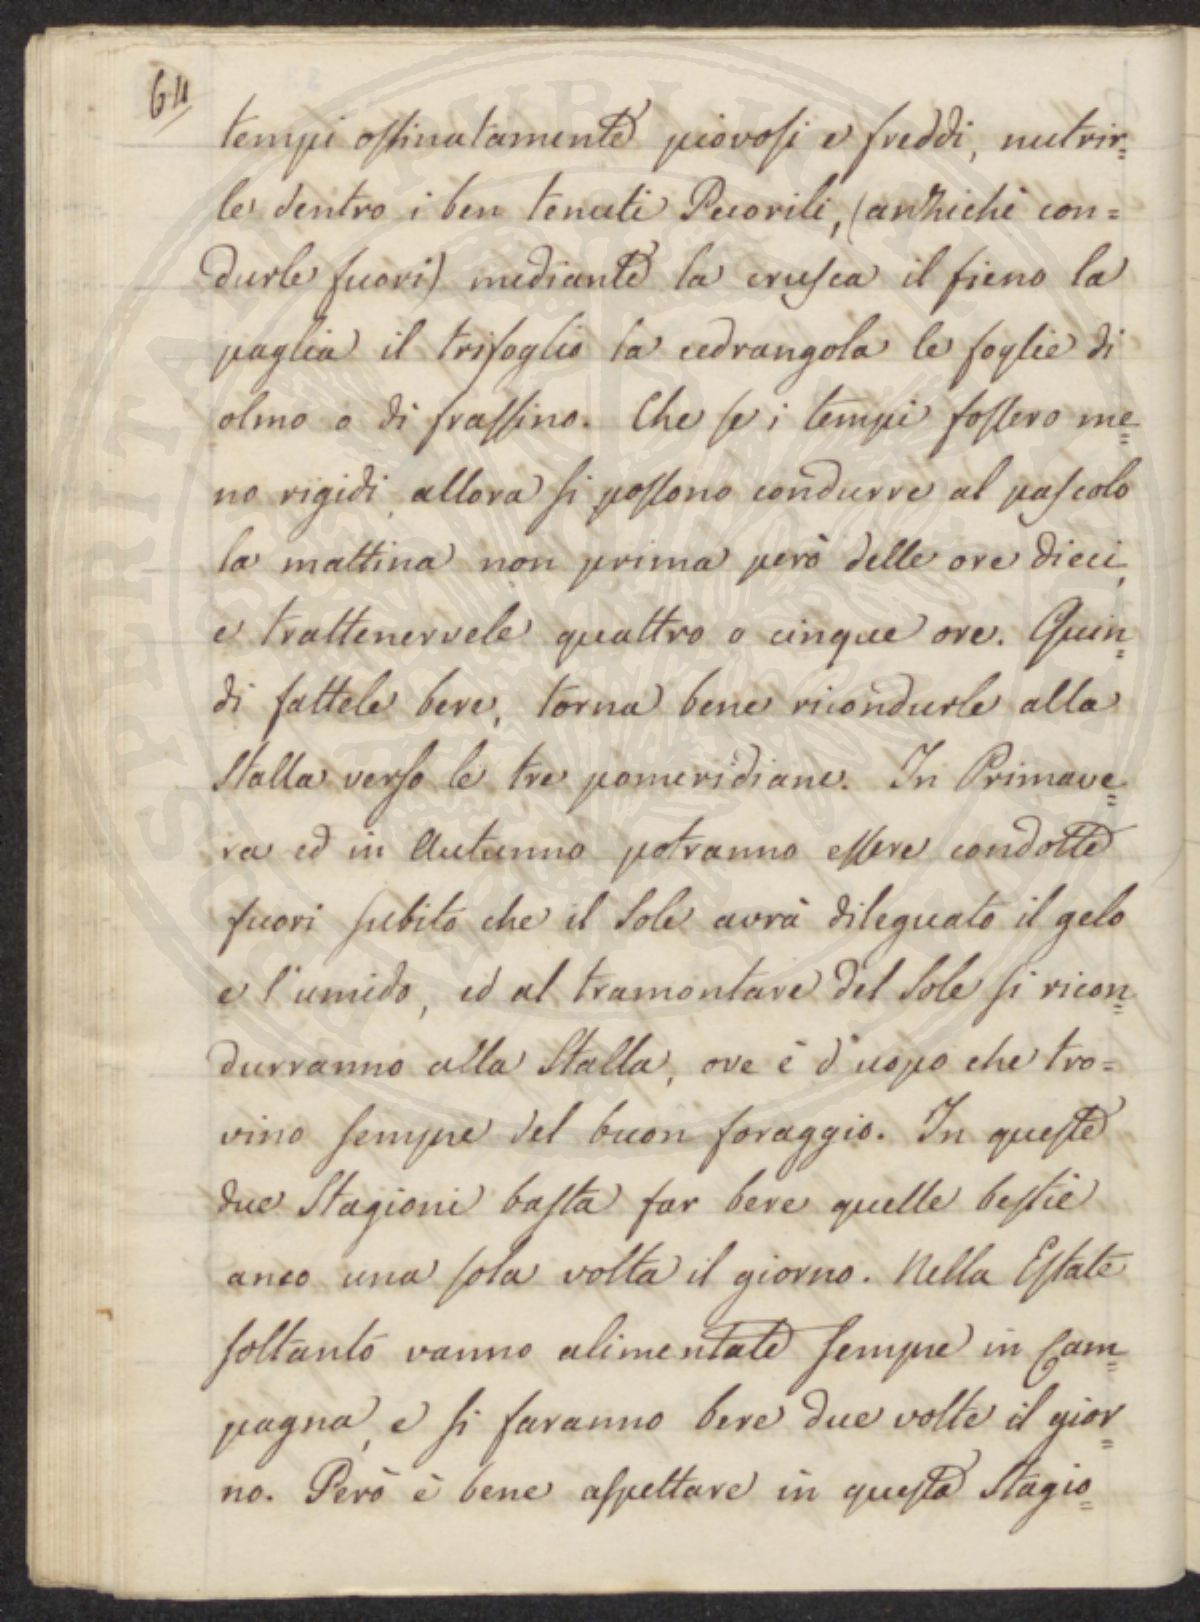 64
tempi ostinatamente piovosi e freddi, nutrir=
le dentro i ben tenuti Pecorili, (anzichè con=
durle fuori) mediante la crusca il fieno la
paglia il trifoglio la cedrangola le foglie di
olmo o di frassino. Che se i tempi fossero me=
no rigidi, allora si possono condurre al pascolo
la mattina non prima però delle ore dieci,
e trattenervele quattro o cinque ore. Quin=
di fattele bere, torna bene ricondurle alla
Stalla verso le tre pomeridiane. In Primave=
ra ed in Autunno potranno essere condotte
fuori subito che il Sole avrà dileguato il gelo
e l'umido, ed al tramontare del Sole si ricon=
durranno alla Stalla, ove è d'uopo che tro=
vino sempre del buon foraggio. In queste
due Stagioni basta far bere quelle bestie
anco una sola volta il giorno. Nella Estate
soltanto vanno alimentate sempre in Cam=
pagna, e si faranno bere due volte il gior=
no. Però è bene aspettare in questa Stagio=